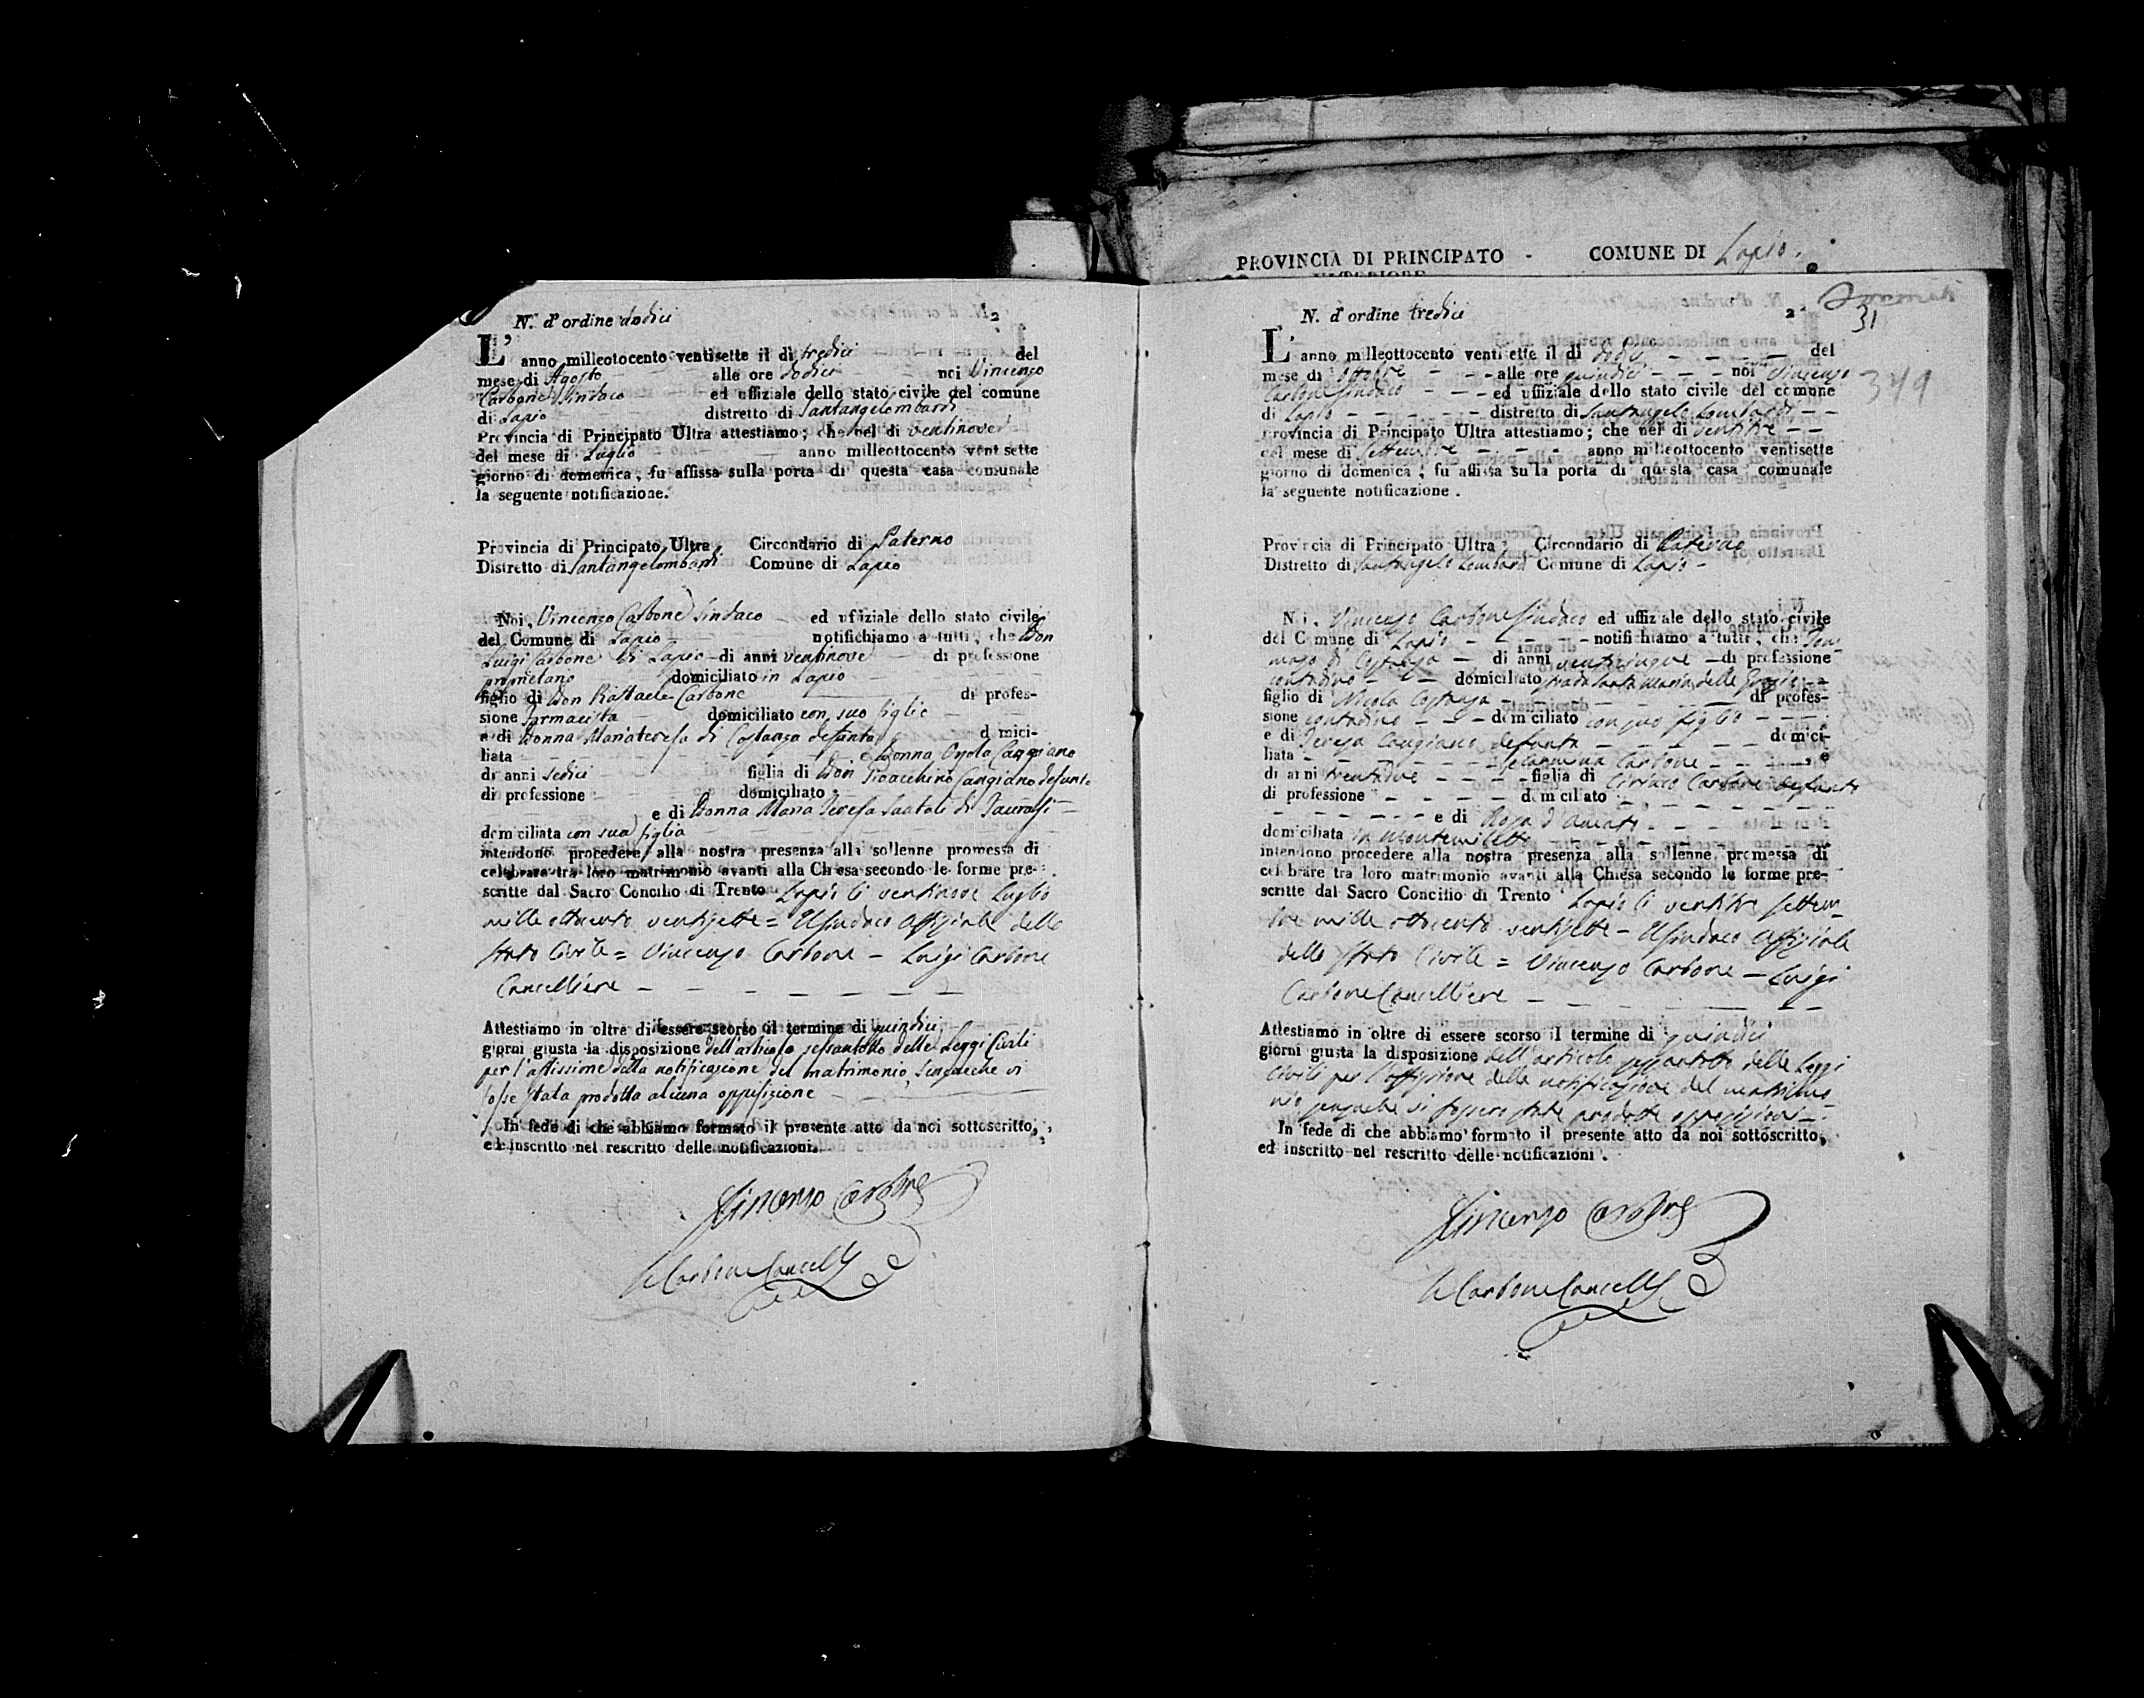 PROVINCIA DI PRINCIPATO - COMUNE DI Lapio.
N.° d'ordine dodici 2
L'anno milleotocento ventisette il di tredici del
mese di Agosto alle ore dodici noi Vincenzo
Carbone Sindaco ed uffiziale dello stato civile del comune
di Lapio distretto di Santangelombardi
Provincia di Principato Ultra attestiamo; che nel di ventinove
del mese di Luglio anno milleottocento ventisette
giorno di domenica, fu affissa sulla porta di questa casa comunale
la seguente notificazione.
Provincia di Principato Ultra. Circondario di Paterno
Distretto di Santangelombardi Comune di Lapio
Noi, Vincenzo Carbone Sindaco ed uffiziale dello stato civile
del Comune di Lapio notifichiamo a tutti, che Don
Luigi Carbone di Lapio di anni ventinove di professione
proprietario domiciliato in Lapio
figlio di Don Raffaele Carbone di profes-
sione Farmacista domiciliato con suo figlio
e di Donna Mariateresa di Costanzo defunta domici-
liata e Donna Caggiano
di anni sedici figlia di Don Gioacchino Cangiano defunto
di professione domiciliato
e di Donna Maria Teresa Santoli di Taurasi
domciliata con sua figlia
intendono procedere alla nostra presenza alla sollenne promessa di
celebrare tra loro matrimonio avanti alla Chiesa secondo le forme pre-
scritte dal Sacro Concilio di Trento Lapio li ventinove Luglio
mille ottocento ventisette = Il Sindaco Uffiziale dello
Stato Civile = Vincenzo Carbone - Luigi Carbone
Cancelliere
Attestiamo in oltre di essere scorso il termine di quindici
giorni giusta la disposizione dell'articolo sessantotto delle Leggi Civili
per l'affissione della notificazione del matrimonio, senza che vi
fosse stata prodotta alcuna opposizione
In fede di che abbiamo formato il presente atto da noi sottoscritto,
ed inscritto nel rescritto delle notificazioni.
Vincenzo Carbone
L Carbone Cancell
N. d'ordine tredici 2
31
349
L'anno milleottocento ventisette il di dodici del
mese di Ottobre alle ore quindici noi Vincenzo
Carbone Sindaco ed uffiziale dello stato civile del comune
di Lapio distretto di Santangelo Lombardi
Provincia di Principato Ultra attestiamo; che nel di ventitre
del mese di Settembre anno milleottocento ventisette
giorno di domenica, fu affissa sulla porta di questa casa comunale
la seguente notificazione.
Provincia di Principato Ultra Circondario di Paterno
Distretto di Santangelo Lombardi Comune di Lapio
Noi, Vincenzo Carbone Sindaco ed uffiziale dello stato civile
del Comune di Lapio notifichiamo a tutti, che Tom-
maso di Costanzo di anni venticinque di professione
contadino domiciliato strada Santa Maria delle Grazie
figlio di Nicola Costanzo di profes-
sione contadino domiciliato con suo figlio
e di Teresa Cangiano defunta domici-
liata Carbone e
di anni trentadue figlia di Ciriaco Carbone defunto
di professione domiciliato
e di Rosa d'Amato
domiciliata in Montemiletto
intendono procedere alla nostra presenza alla sollenne promessa di
celebrare tra loro matrimonio avanti alla Chiesa secondo le forme pre-
scritte dal Sacro Concilio di Trento Lapio li ventitre Settem-
bre mille ottocento ventisette - Il Sindaco Uffiziale
dello Stato Civile = Vincenzo Carbone - Luigi
Carbone Cancelliere
Attestiamo in oltre di essere scorso il termine di quindici
giorni giusta la disposizione dell'articolo sessantotto delle Leggi
Civili per l'affissione della notificazione del matrimo-
nio senza che vi fossero state prodotte opposizioni
In fede di che abbiamo formato il presente atto da noi sottoscritto,
ed inscritto nel rescritto delle notificazioni.
Vincenzo Carbone
L Carbone Cancell